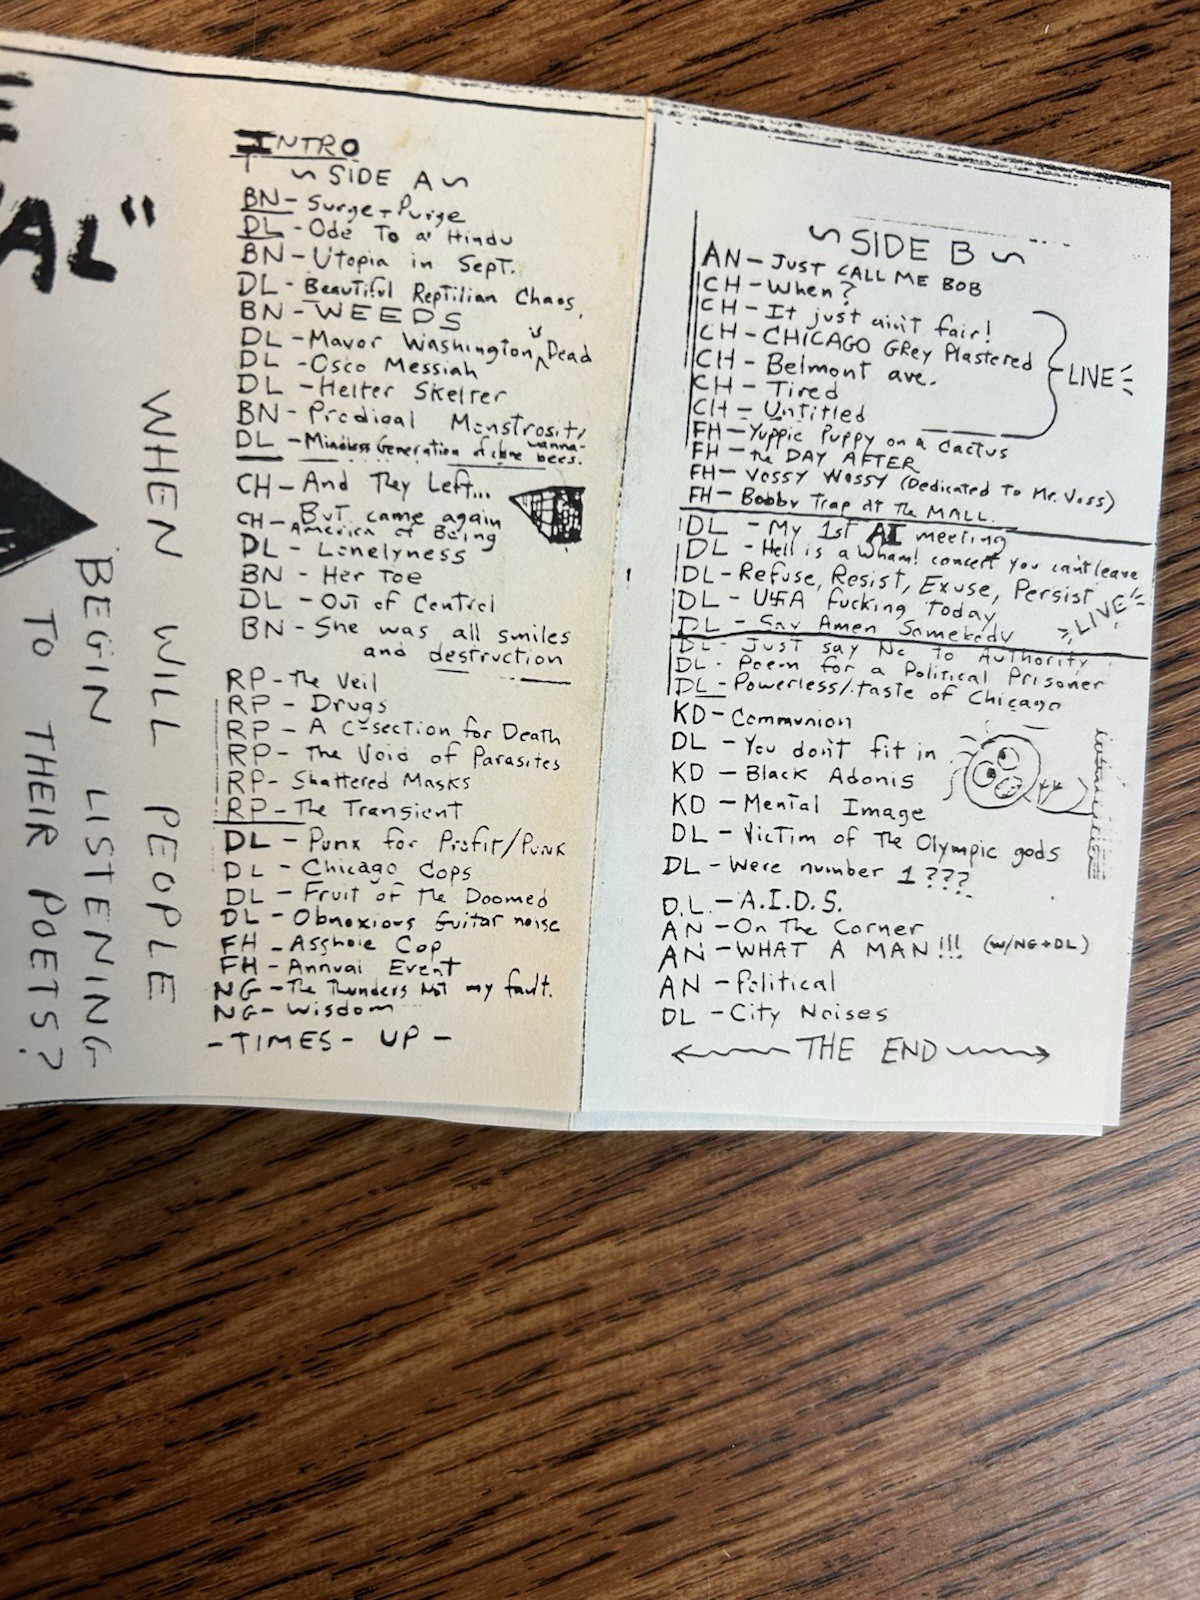 AL"
WHEN WILL PEOPLE
BEGIN LISTENING
TO THEIR POETS?
INTRO
~ SIDE A ~
BN - Surge + Purge
DL - Ode To a Hindu
BN - Utopia in Sept.
DL - Beautiful Reptilian Chaos.
BN - WEEDS
DL - Mayor Washington is Dead
DL - Osco Messiah
DL - Helter Skelter
BN - Prodigal Monstrosity
DL - Mindless Generation of clone wanna-bees.
CH - And They Left...
CH - But came again
America of Being
DL - Lonelyness
BN - Her Toe
DL - Out of Control
BN - She was all smiles
and destruction
RP - The Veil
RP - Drugs
RP - A C-section for Death
RP - The Void of Parasites
RP - Shattered Masks
RP - The Transient
DL - Punx for Profit/Punk
DL - Chicago Cops
DL - Fruit of the Doomed
DL - Obnoxious Guitar noise
FH - Asshole Cop
FH - Annual Event
NG - The Thunders Not my fault.
NG - Wisdom
- TIMES - UP -
~ SIDE B ~
AN - JUST CALL ME BOB
CH - When?
CH - It just ain't fair!
CH - CHICAGO GRey Plastered
CH - Belmont ave.
CH - Tired
CH - Untitled
LIVE
FH - Yuppie Puppy on a Cactus
FH - the DAY AFTER
FH - Vossy Wossy (Dedicated To Mr. Voss)
FH - Booby Trap at The MALL.
DL - My 1st AI meeting
DL - Hell is a Wham! concert you can't leave
DL - Refuse, Resist, Exuse, Persist
DL - USA fucking today
LIVE
DL - Say Amen Somebody
DL - Just say No to Authority
DL - Poem for a Political Prisoner
DL - Powerless/taste of Chicago
KD - Communion
DL - You don't fit in
KD - Black Adonis
KD - Mental Image
DL - Victim of The Olympic gods
DL - Were number 1???
D.L. - A.I.D.S.
AN - On The Corner
AN - WHAT A MAN!!! (w/NG+DL)
AN - Political
DL - City Noises
THE END